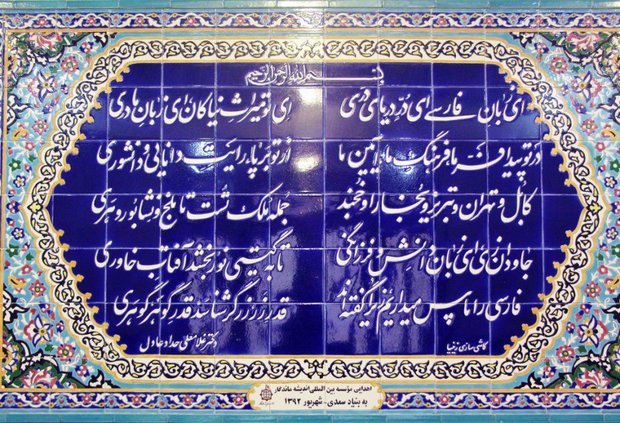 بسم الله الرحمن الرحیم
ای زبان فارسی ای در دریای دری ای تو میراث نیاکان ای زبان مادری
در تو پیدا فر ما فرهنگ ما آیین ما از تو برپا رایت دانایی و دانشوری
کابل و تهران و تبریز و بخارا و خجند جمله ملک تست تا بلخ و نشابور و هری
جاودان زی ای زبان دانش و فرزانگی تا به گیتی نور بخشد آفتاب خاوری
فارسی را پاس میداریم زیرا گفته‌اند قدر زر زرگر شناسد قدر گوهر گوهری
کاشی سازی دکتر غلامعلی حداد عادل
اهدایی مؤسسه بین المللی اندیشه ماندگار
به بنیاد سعدی - شهریور ۱۳۹۲